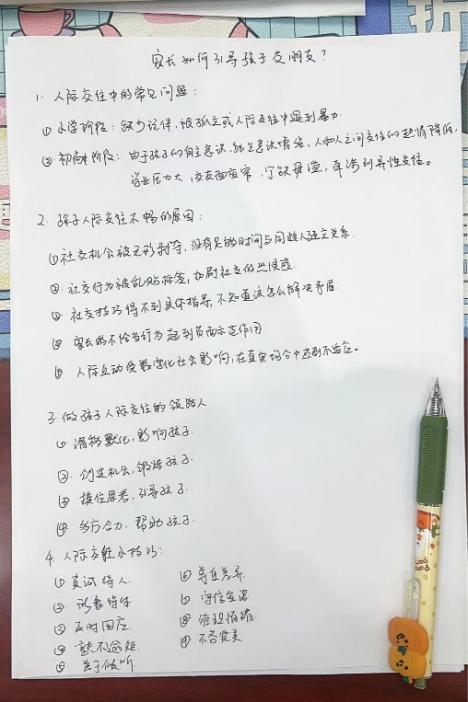 家长如何引导孩子交朋友？
1. 人际交往中的常见问题：
① 小学阶段：缺少玩伴，被孤立或人际交往中遇到暴力.
② 初高中阶段：由于孩子们自主意识，独立意识增强，人和人之间交往的热情降低，
学业压力大，交友面窄，宁缺毋滥，牵涉到异性交往。
2. 孩子人际交往不畅的原因：
①社交机会被无形剥夺，没有足够时间与同龄人建立关系.
②社交行为被乱贴标签，加剧社交的恐惧感.
③社交技巧得不到具体指导，不知道该怎么解决矛盾.
④家长的不恰当行为起到负面示范作用
⑤人际互动受数字化社会影响，在真实场合中感到不适应。
3. 做孩子人际交往的领路人
①潜移默化，影响孩子.
②创造机会，锻炼孩子.
③换位思考，引导孩子.
④多方合力，帮助孩子.
4. 人际交往小技巧：
①真诚待人
②形象得体
③及时回应.
④
⑤善于倾听
⑥尊重差异.
⑦守信
⑧管理情绪.
⑨不吝赞美